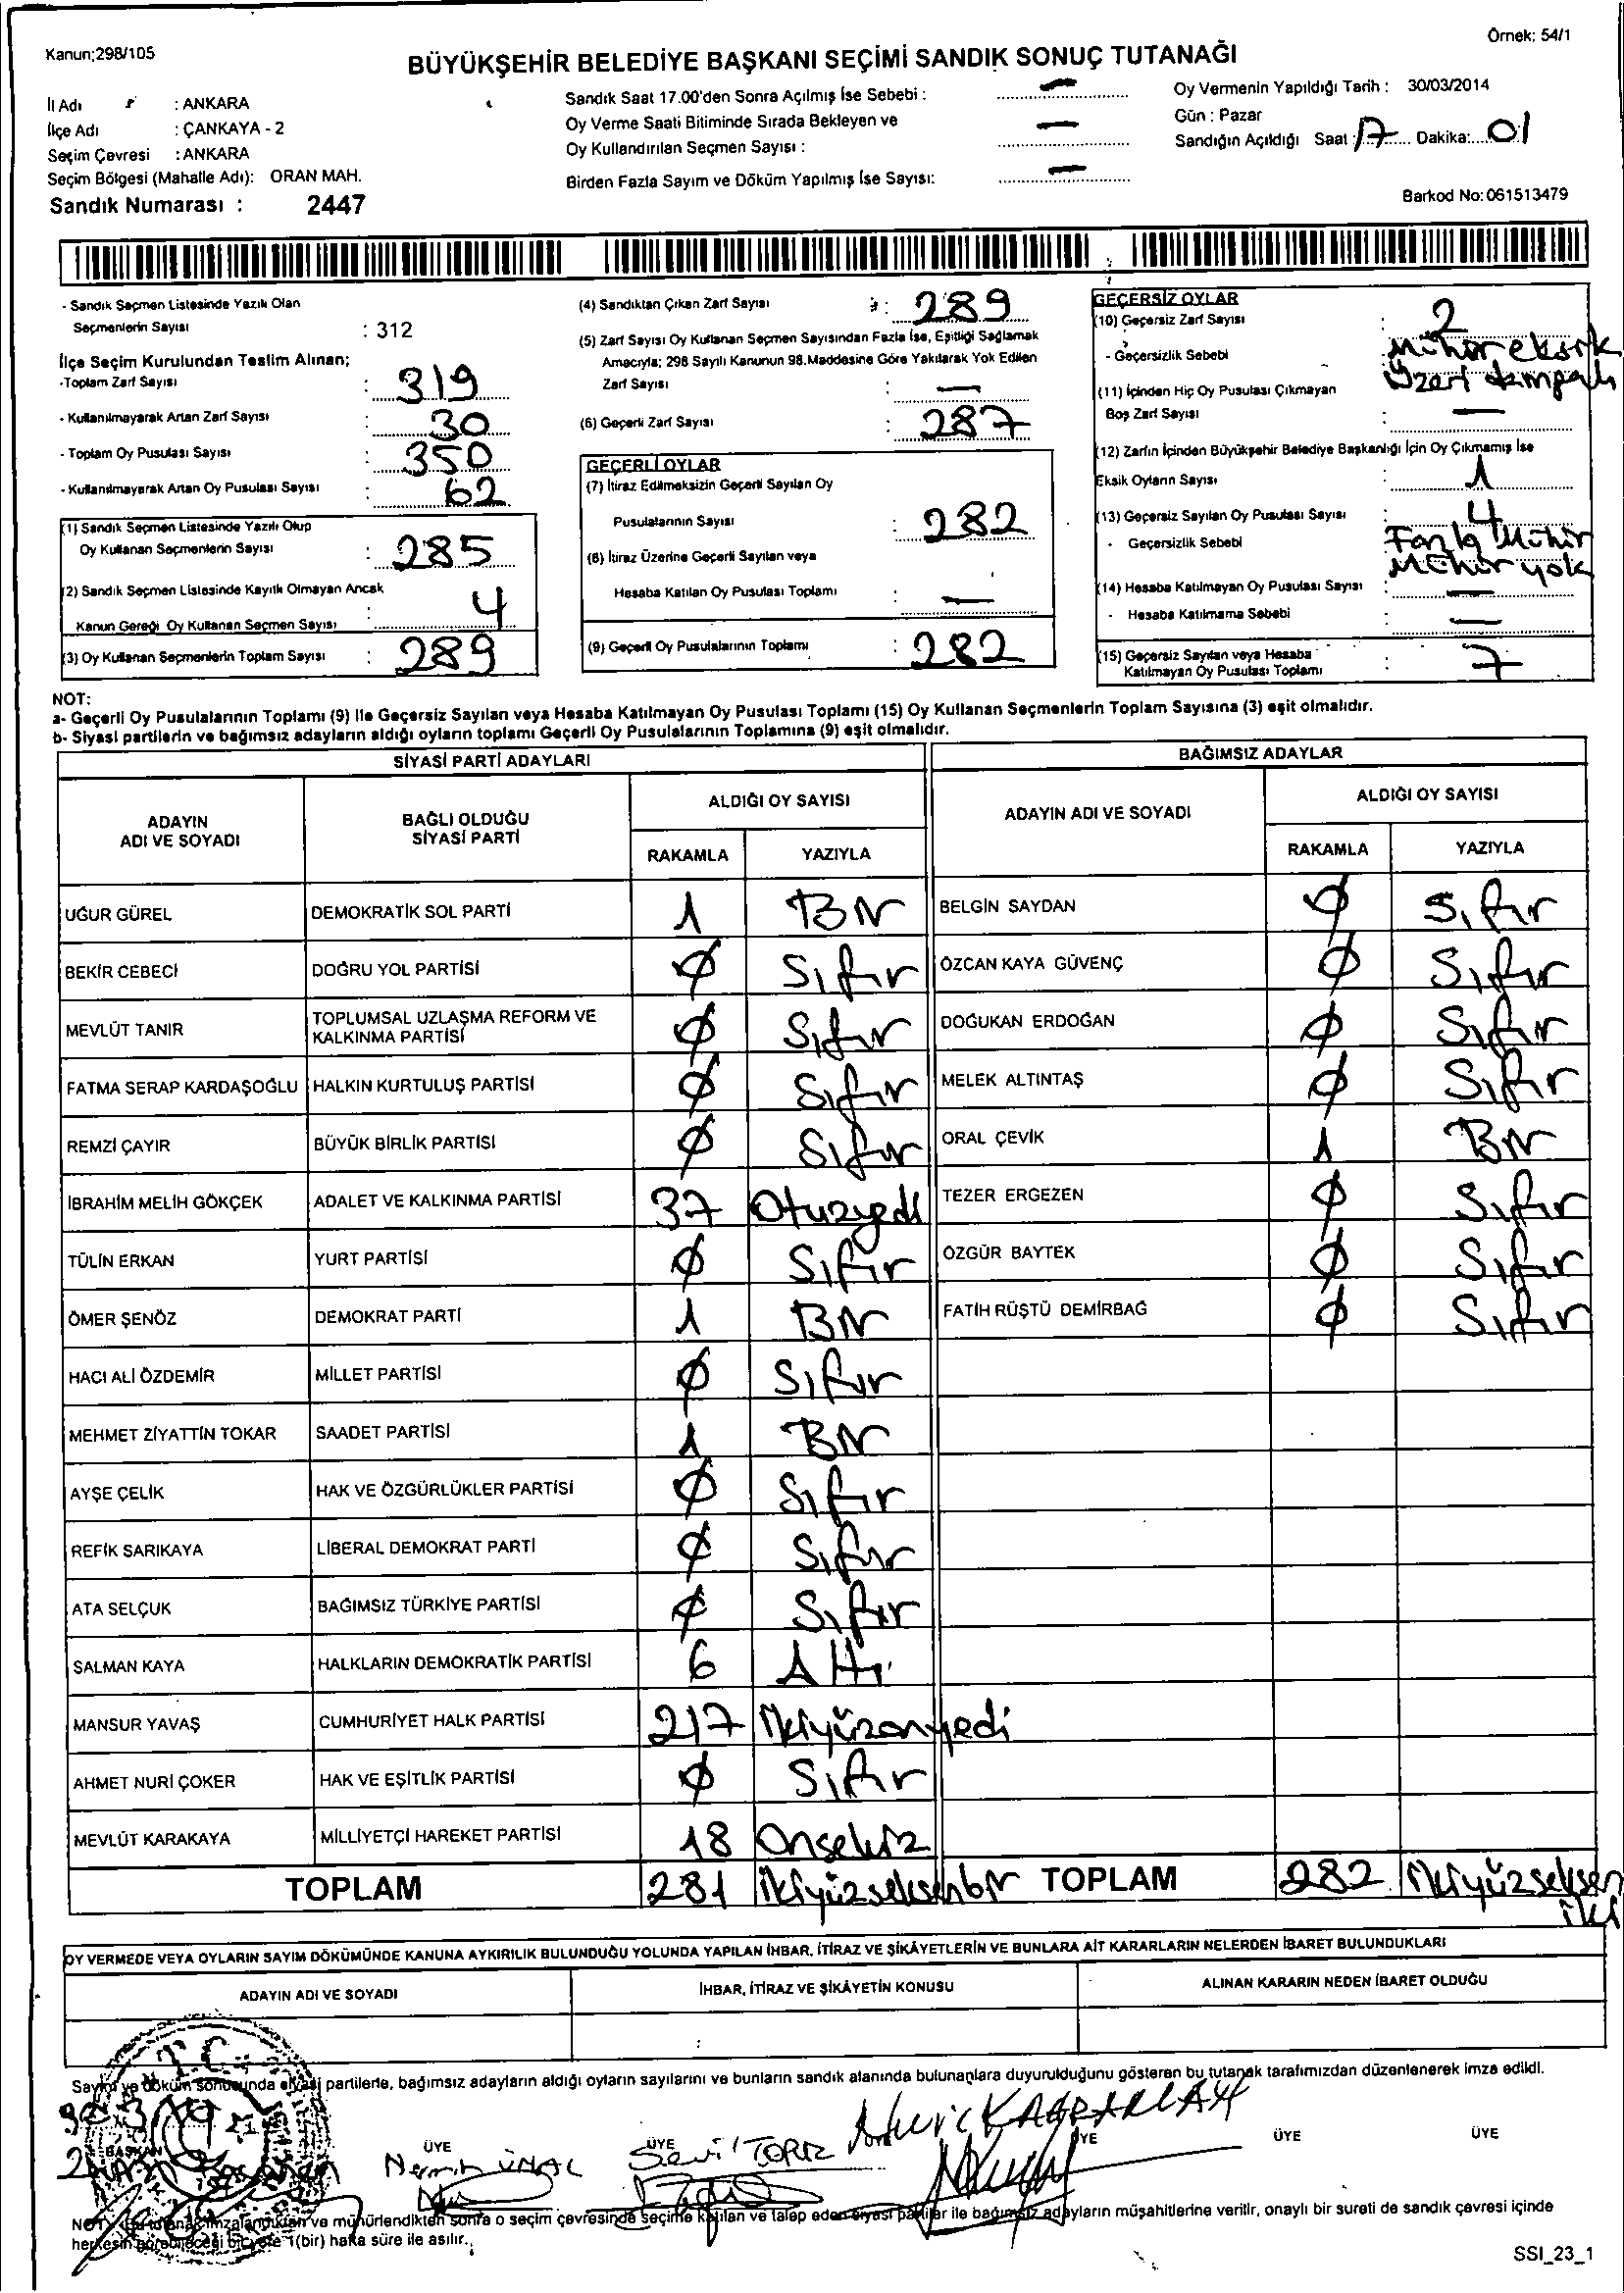 Kanun;298/105
Örnek: 54/1
BÜYÜKŞEHİR BELEDİYE BAŞKANI SEÇİMİ SANDIK SONUÇ TUTANAĞI
İl Adı : ANKARA
İlçe Adı : ÇANKAYA - 2
Seçim Çevresi : ANKARA
Seçim Bölgesi (Mahalle Adı): ORAN MAH.
Sandık Numarası : 2447
Sandık Saat 17.00'den Sonra Açılmış İse Sebebi : —
Oy Verme Saati Bitiminde Sırada Bekleyen ve
Oy Kullandırılan Seçmen Sayısı : —
Birden Fazla Sayım ve Döküm Yapılmış İse Sayısı: —
Oy Vermenin Yapıldığı Tarih : 30/03/2014
Gün : Pazar
Sandığın Açıldığı Saat : 17 Dakika: 01
Barkod No:061513479
- Sandık Seçmen Listesinde Yazılı Olan
Seçmenlerin Sayısı : 312
İlçe Seçim Kurulundan Teslim Alınan;
-Toplam Zarf Sayısı : 319
- Kullanılmayarak Artan Zarf Sayısı : 30
- Toplam Oy Pusulası Sayısı : 350
- Kullanılmayarak Artan Oy Pusulası Sayısı : 62
(1) Sandık Seçmen Listesinde Yazılı Olup
Oy Kullanan Seçmenlerin Sayısı : 285
(2) Sandık Seçmen Listesinde Kayıtlı Olmayan Ancak
Kanun Gereği Oy Kullanan Seçmen Sayısı : 4
(3) Oy Kullanan Seçmenlerin Toplam Sayısı : 289
(4) Sandıktan Çıkan Zarf Sayısı : 289
(5) Zarf Sayısı Oy Kullanan Seçmen Sayısından Fazla İse, Eşitliği Sağlamak
Amacıyla; 298 Sayılı Kanunun 98.Maddesine Göre Yakılarak Yok Edilen
Zarf Sayısı : —
(6) Geçerli Zarf Sayısı : 287
GEÇERLİ OYLAR
(7) İtiraz Edilmeksizin Geçerli Sayılan Oy
Pusulalarının Sayısı : 282
(8) İtiraz Üzerine Geçerli Sayılan veya
Hesaba Katılan Oy Pusulası Toplamı : —
(9) Geçerli Oy Pusulalarının Toplamı : 282
GEÇERSİZ OYLAR
(10) Geçersiz Zarf Sayısı : 2
- Geçersizlik Sebebi : Mühür eksik
Üzeri damgalı
(11) İçinden Hiç Oy Pusulası Çıkmayan
Boş Zarf Sayısı : —
(12) Zarfın İçinden Büyükşehir Belediye Başkanlığı İçin Oy Çıkmamış İse
Eksik Oyların Sayısı : 1
(13) Geçersiz Sayılan Oy Pusulası Sayısı : 4
- Geçersizlik Sebebi Fazla Mühür
Mühür yok
(14) Hesaba Katılmayan Oy Pusulası Sayısı : —
- Hesaba Katılmama Sebebi : —
(15) Geçersiz Sayılan veya Hesaba
Katılmayan Oy Pusulası Toplamı : 7
NOT:
a- Geçerli Oy Pusulalarının Toplamı (9) İle Geçersiz Sayılan veya Hesaba Katılmayan Oy Pusulası Toplamı (15) Oy Kullanan Seçmenlerin Toplam Sayısına (3) eşit olmalıdır.
b- Siyasi partilerin ve bağımsız adayların aldığı oyların toplamı Geçerli Oy Pusulalarının Toplamına (9) eşit olmalıdır.
SİYASİ PARTİ ADAYLARI
ADAYIN ADI VE SOYADI BAĞLI OLDUĞU SİYASİ PARTİ ALDIĞI OY SAYISI
RAKAMLA YAZIYLA
UĞUR GÜREL DEMOKRATİK SOL PARTİ 1 Bir
BEKİR CEBECİ DOĞRU YOL PARTİSİ 0 Sıfır
MEVLÜT TANIR TOPLUMSAL UZLAŞMA REFORM VE KALKINMA PARTİSİ 0 Sıfır
FATMA SERAP KARDAŞOĞLU HALKIN KURTULUŞ PARTİSİ 0 Sıfır
REMZİ ÇAYIR BÜYÜK BİRLİK PARTİSİ 0 Sıfır
İBRAHİM MELİH GÖKÇEK ADALET VE KALKINMA PARTİSİ 37 Otuzyedi
TÜLİN ERKAN YURT PARTİSİ 0 Sıfır
ÖMER ŞENÖZ DEMOKRAT PARTİ 1 Bir
HACI ALİ ÖZDEMİR MİLLET PARTİSİ 0 Sıfır
MEHMET ZİYATTİN TOKAR SAADET PARTİSİ 1 Bir
AYŞE ÇELİK HAK VE ÖZGÜRLÜKLER PARTİSİ 0 Sıfır
REFİK SARIKAYA LİBERAL DEMOKRAT PARTİ 0 Sıfır
ATA SELÇUK BAĞIMSIZ TÜRKİYE PARTİSİ 0 Sıfır
SALMAN KAYA HALKLARIN DEMOKRATİK PARTİSİ 6 Altı
MANSUR YAVAŞ CUMHURİYET HALK PARTİSİ 217 İkiyüzonyedi
AHMET NURİ ÇOKER HAK VE EŞİTLİK PARTİSİ 0 Sıfır
MEVLÜT KARAKAYA MİLLİYETÇİ HAREKET PARTİSİ 18 Onsekiz
TOPLAM 281 İkiyüzseksenbir
BAĞIMSIZ ADAYLAR
ADAYIN ADI VE SOYADI ALDIĞI OY SAYISI
RAKAMLA YAZIYLA
BELGİN SAYDAN 0 Sıfır
ÖZCAN KAYA GÜVENÇ 0 Sıfır
DOĞUKAN ERDOĞAN 0 Sıfır
MELEK ALTINTAŞ 0 Sıfır
ORAL ÇEVİK 1 Bir
TEZER ERGEZEN 0 Sıfır
ÖZGÜR BAYTEK 0 Sıfır
FATİH RÜŞTÜ DEMİRBAĞ 0 Sıfır
TOPLAM 282 İkiyüzseksen
iki
OY VERMEDE VEYA OYLARIN SAYIM DÖKÜMÜNDE KANUNA AYKIRILIK BULUNDUĞU YOLUNDA YAPILAN İHBAR, İTİRAZ VE ŞİKÂYETLERİN VE BUNLARA AİT KARARLARIN NELERDEN İBARET BULUNDUKLARI
ADAYIN ADI VE SOYADI İHBAR, İTİRAZ VE ŞİKÂYETİN KONUSU ALINAN KARARIN NEDEN İBARET OLDUĞU
Sayım ve döküm sonucunda siyasi partilerle, bağımsız adayların aldığı oyların sayılarını ve bunların sandık alanında bulunanlara duyurulduğunu gösteren bu tutanak tarafımızdan düzenlenerek imza edildi.
T.C.
BAŞKAN ÜYE ÜYE ÜYE ÜYE ÜYE
Nermin ÜNAL
NOT: Bu tutanak imzalandıktan ve mühürlendikten sonra o seçim çevresinde seçime katılan ve talep eden siyasi partiler ile bağımsız adayların müşahitlerine verilir, onaylı bir sureti de sandık çevresi içinde
herkesin görebileceği bir yere 1(bir) hafta süre ile asılır.
SSI_23_1